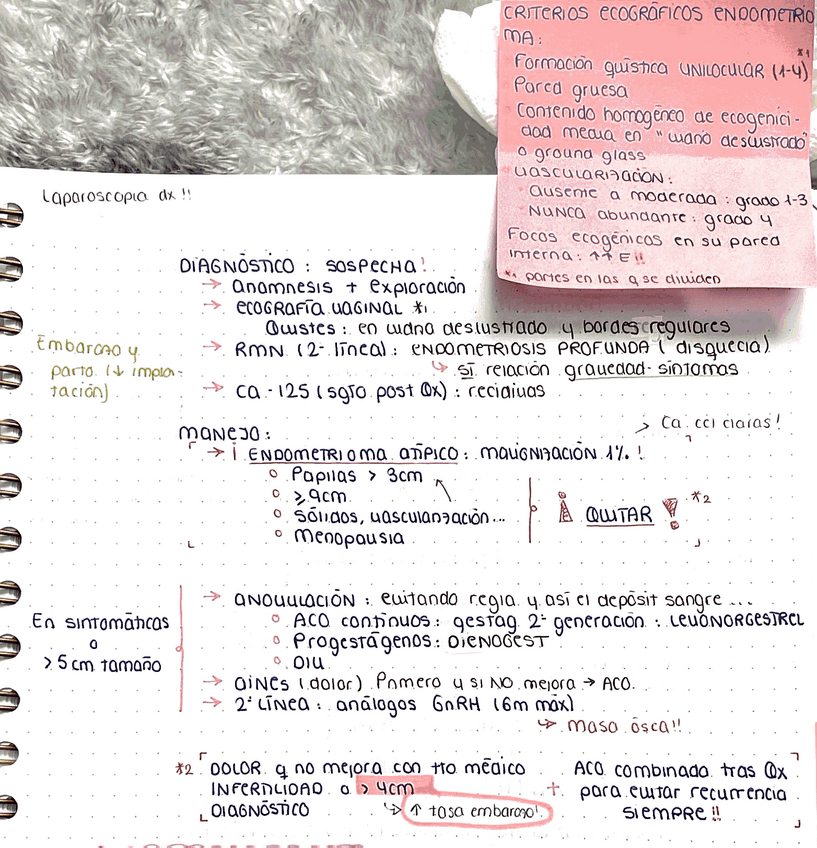 CRITERIOS ECOGRÁFICOS ENDOMETRIO
MA:
Formación quística UNILOCULAR (1-4) *1
Pared gruesa
Contenido homogéneo de ecogenici-
dad media en "vidrio deslustrado"
o ground glass
VASCULARIZACIÓN:
Ausente a moderada: grado 1-3
NUNCA abundante: grado 4
Focos ecogénicos en su pared
interna: ↑↑ E!!
*1 partes en las q se dividen
Laparoscopia dx!!
DIAGNÓSTICO: SOSPECHA!
→ anamnesis + exploración
→ ECOGRAFÍA VAGINAL *1
Quistes: en vidrio deslustrado y bordes regulares
Embarazo y
parto (↓ implan-
tación)
→ RMN (2ª línea): ENDOMETRIOSIS PROFUNDA (disquecia)
↳ sí relación gravedad-síntomas
→ Ca-125 (sgto post Qx): recidivas
MANEJO:
> Ca. cél claras!
→ ¡ENDOMETRIOMA ATÍPICO: MALIGNIZACIÓN 1%!
Papilas > 3cm
≥9cm
Sólidos, vascularización...
Menopausia
¡QUITAR! *2
En sintomáticas
o
>5cm tamaño
→ ANOVULACIÓN: evitando regla y así el depósit sangre...
ACO continuos: gestág 2ª generación: LEVONORGESTREL
Progestágenos: DIENOGEST
DIU
→ AINES (dolor). Primero y si NO mejora → ACO.
→ 2ª LÍNEA: análogos GnRH (6m máx)
↳ masa ósea!!
*2 DOLOR q no mejora con tto médico
INFERTILIDAD o > 4cm
DIAGNÓSTICO
↳ ↑ tasa embarazo!
+ ACO combinado tras Qx
para evitar recurrencia
SIEMPRE!!